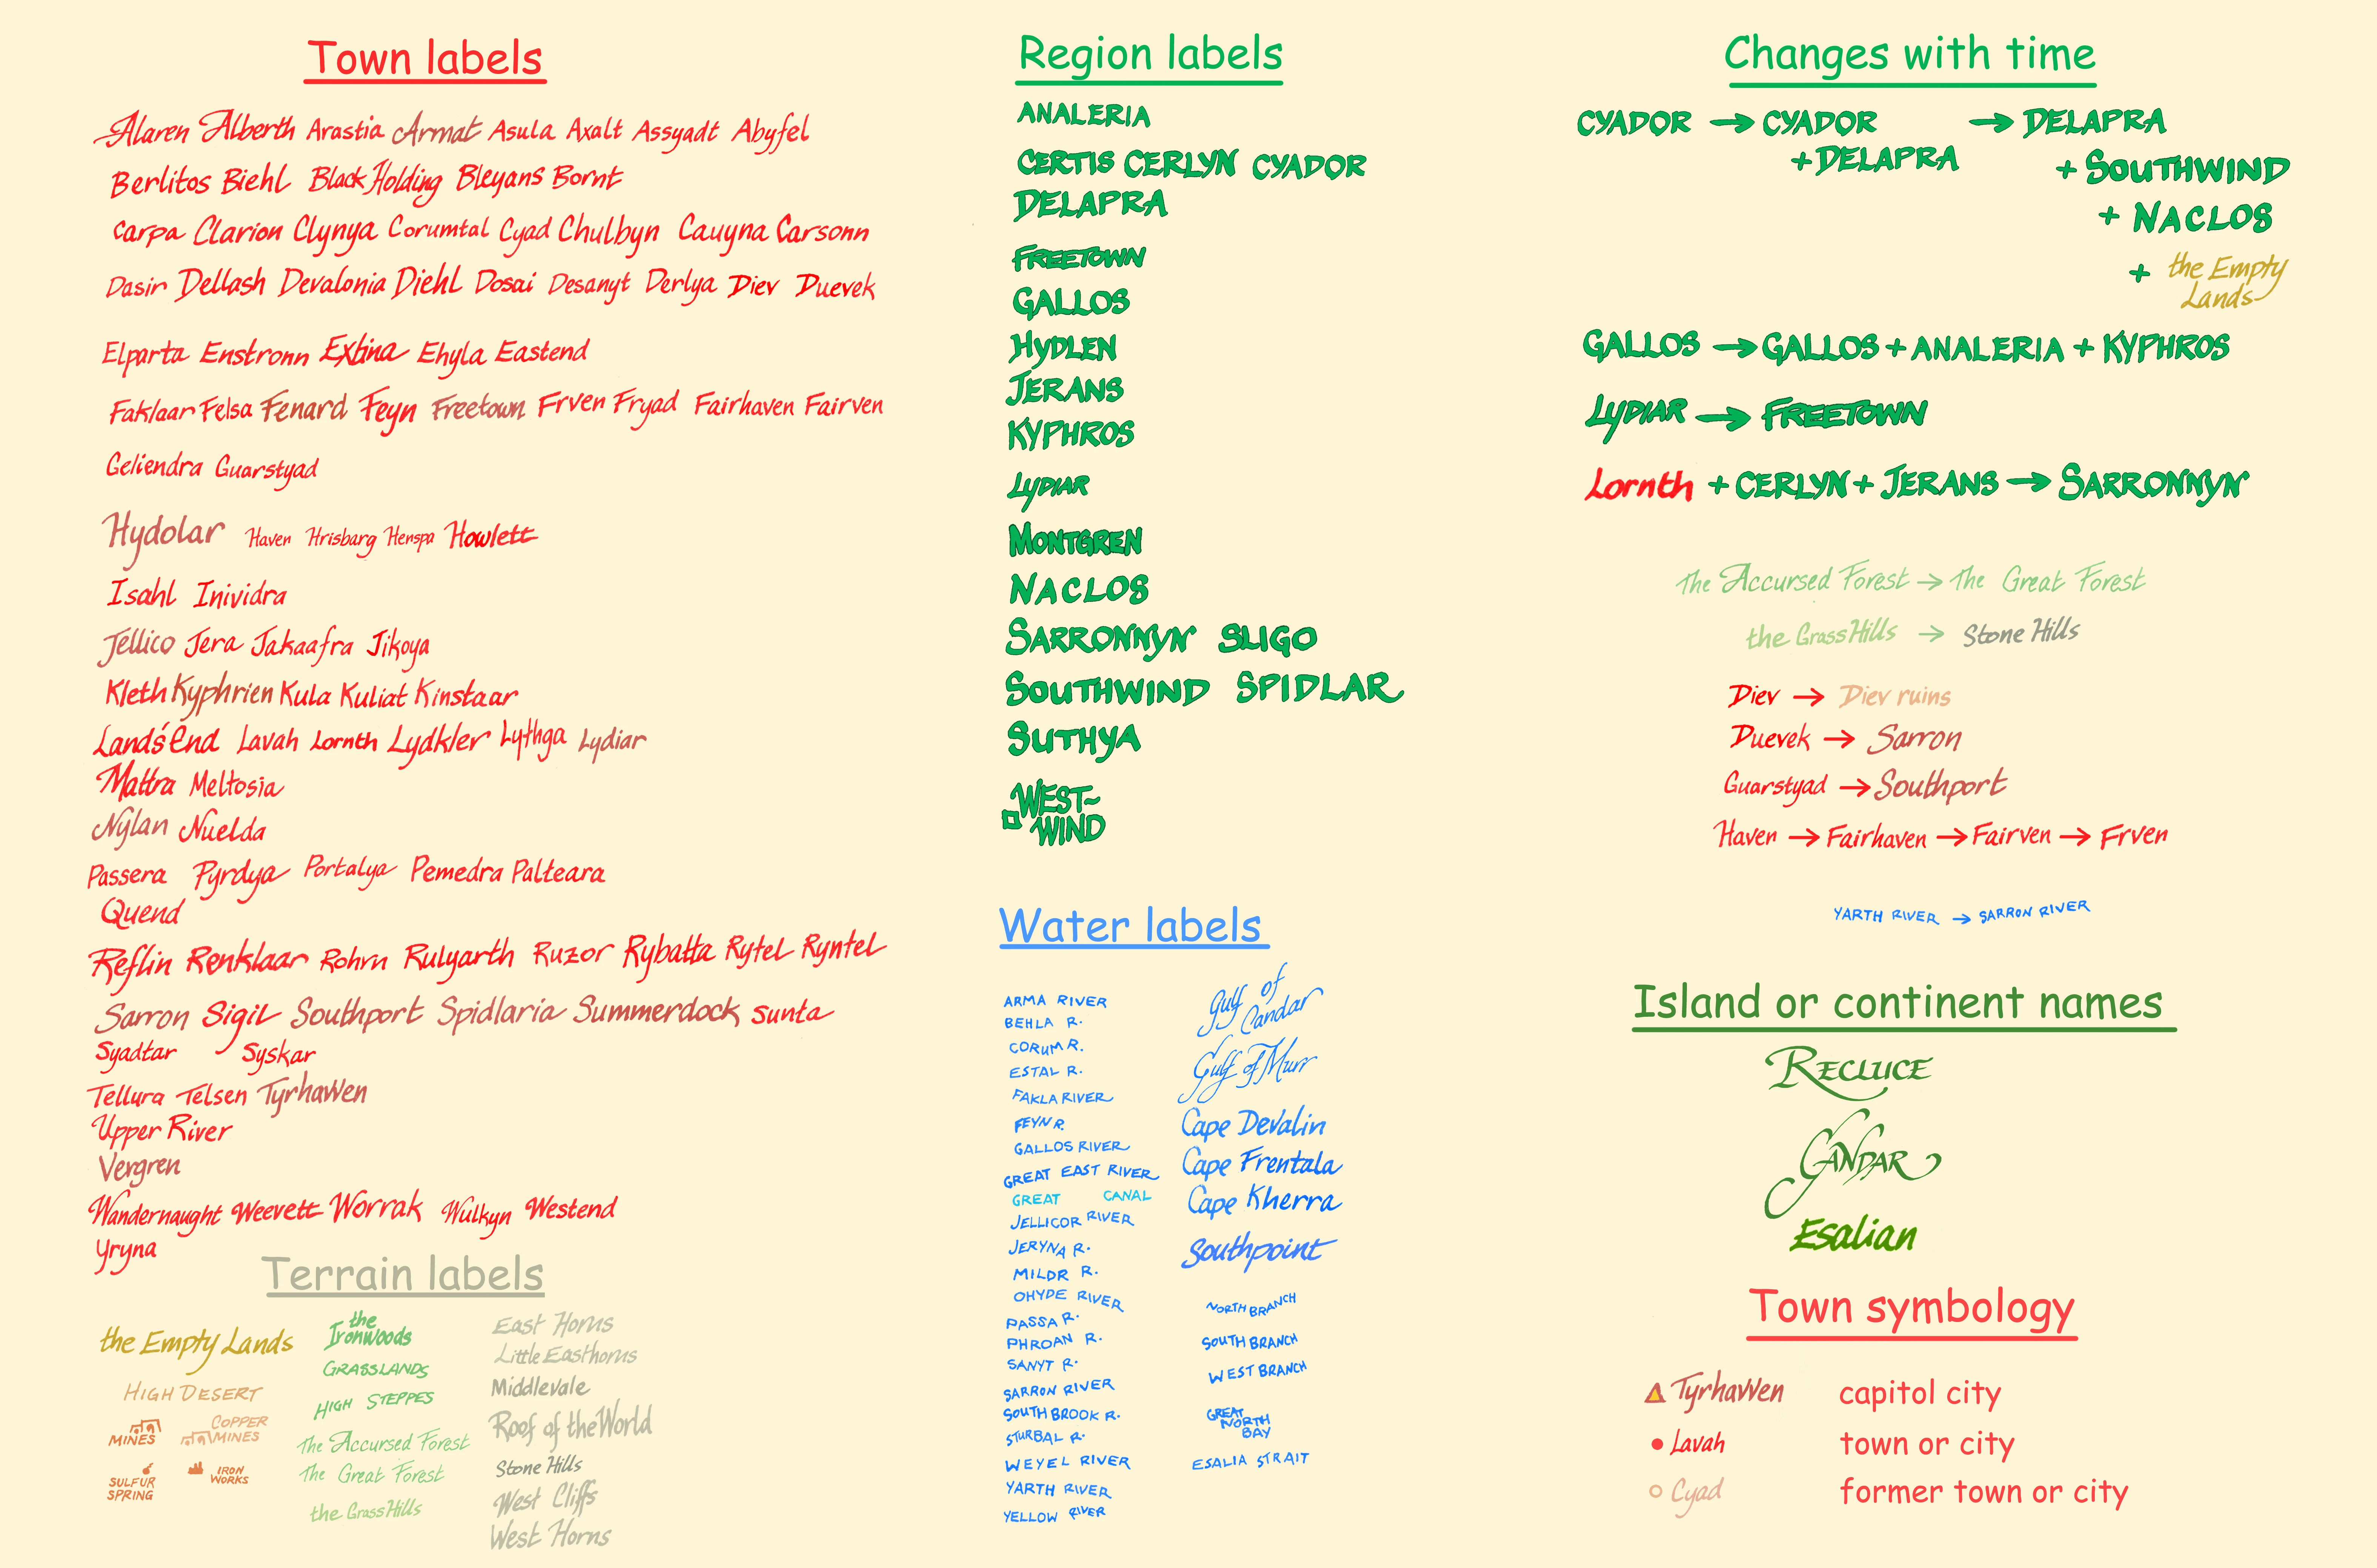 Town labels
Alaren Alberth Arastia Armat Asula Axalt Assyadt Abyfel
Berlitos Biehl Black Holding Bleyans Bornt
Carpa Clarion Clynya Corumtal Cyad Chulbyn Cauyna Carsonn
Dasir Dellash Devalonia Diehl Dosai Desanyt Derlya Diev Duevek
Elparta Enstronn Extina Ehyla Eastend
Faklaar Felsa Fenard Feyn Freetown Frven Fryad Fairhaven Fairven
Geliendra Guarstyad
Hydolar Haven Hrisbarg Henspa Howlett
Isahl Inividra
Jellico Jera Jakaafra Jikoya
Kleth Kyphrien Kula Kuliat Kinstaar
Land's End Lavah Lornth Lydkler Lythga Lydiar
Mattra Meltosia
Nylan Nuelda
Passera Pyrdya Portalya Pemedra Palteara
Quend
Reflin Renklaar Rohrn Rulyarth Ruzor Rybatta Rytel Ryntel
Sarron Sigil Southport Spidlaria Summerdock Sunta
Syadtar Syskar
Tellura Telsen Tyrhavven
Upper River
Vergren
Wandernaught Weevett Worrak Wulkyn Westend
Yryna
Terrain labels
the Empty Lands
HIGH DESERT
MINES
COPPER
MINES
SULFUR
SPRING
IRON
WORKS
the
Ironwoods
GRASSLANDS
HIGH STEPPES
The Accursed Forest
The Great Forest
the Grass Hills
East Horns
Little Easthorns
Middlevale
Roof of the World
Stone Hills
West Cliffs
West Horns
Region labels
ANALERIA
CERTIS CERLYN CYADOR
DELAPRA
FREETOWN
GALLOS
HYDLEN
JERANS
KYPHROS
LYDIAR
MONTGREN
NACLOS
SARRONNYN SLIGO
SOUTHWIND SPIDLAR
SUTHYA
WEST~
WIND
Water labels
ARMA RIVER
BEHLA R.
CORUM R.
ESTAL R.
FAKLA RIVER
FEYN R.
GALLOS RIVER
GREAT EAST RIVER
GREAT CANAL
JELLICOR RIVER
JERYNA R.
MILDR R.
OHYDE RIVER
PASSA R.
PHROAN R.
SANYT R.
SARRON RIVER
SOUTH BROOK R.
STURBAL R.
WEYEL RIVER
YARTH RIVER
YELLOW RIVER
Gulf of
Candar
Gulf of Murr
Cape Devalin
Cape Frentala
Cape Kherra
Southpoint
NORTH BRANCH
SOUTH BRANCH
WEST BRANCH
GREAT
NORTH
BAY
ESALIA STRAIT
Changes with time
CYADOR → CYADOR → DELAPRA
+ DELAPRA + SOUTHWIND
+ NACLOS
+ the Empty
Lands
GALLOS → GALLOS + ANALERIA + KYPHROS
LYDIAR → FREETOWN
Lornth + CERLYN + JERANS → SARRONNYN
The Accursed Forest → The Great Forest
the Grass Hills → Stone Hills
Diev → Diev ruins
Duevek → Sarron
Guarstyad → Southport
Haven → Fairhaven → Fairven → Frven
YARTH RIVER → SARRON RIVER
Island or continent names
RECLUCE
CANDAR
Esalian
Town symbology
Tyrhavven capitol city
Lavah town or city
Cyad former town or city